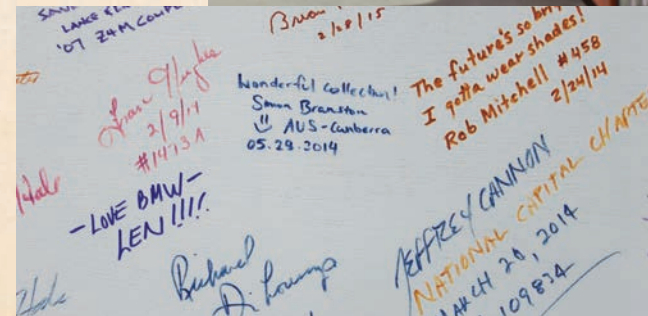 '07 Z4M COUPE
2/28/15
Hughes
2/9/14
#1473A
Wonderful collection!
Simon Branston
AUS-Canberra
05.29.2014
The future's so bri
I gotta wear shades!
Rob Mitchell #458
2/24/14
-LOVE BMW-
LEN !!!!
Richard
JEFFREY CANNON
NATIONAL CAPITAL CHAPTE
MARCH 20, 2014
109834